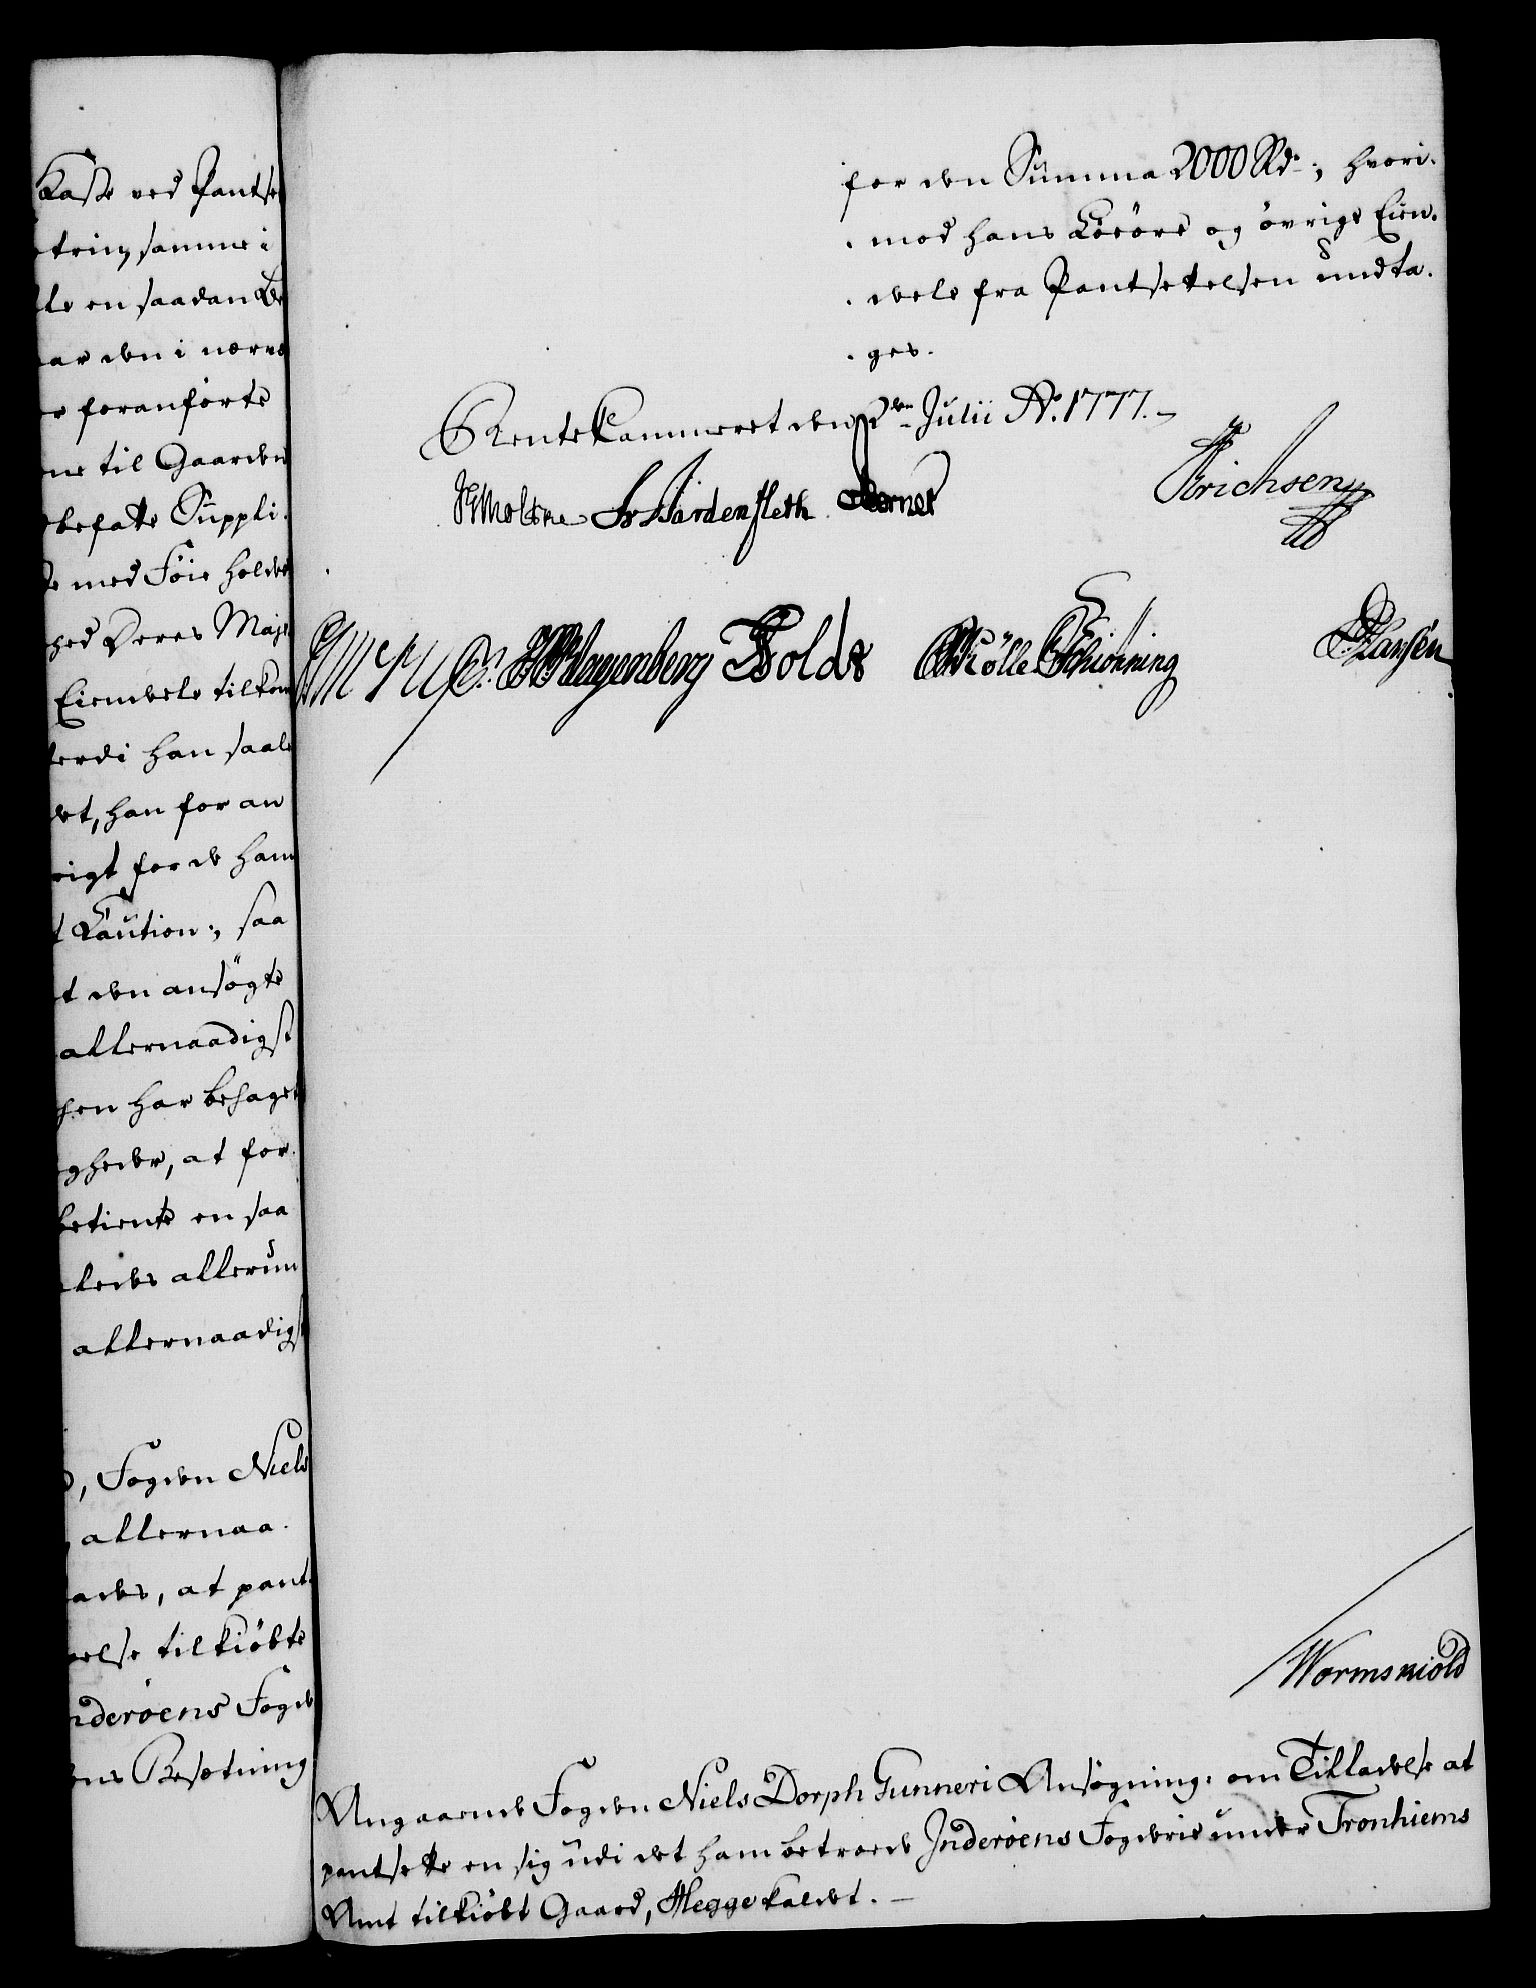 Kasse ved Pantse
samme i
en saadan
den i nærvæ
foranførte
til Gaarden
befatte Suppli-
med Føie holde
Deres Maje
Eiendele tilkom
han saale
det, han for an
rigt for de ham
Caution, saa
den ansøgte
allernaadigst
har behaget
gheder, at for-
betiente en saa
ledes allerun
allernaadigs
, Fogden Niels
allernaa-
, at pant
else tilkiøbte
nderøens Fogd
Besætning
for den Summa 2000 Rd., hvori-
mod hans Løsøre og øvrige Eien-
dele fra Pantsettelsen undta-
ges.
RenteKammeret den Julii Ao. 1777.
Moltke Fr Bardenfleth
Erichsen
Klagenberg Holde Mölle Schiønning
Hansen
Wormskiold
Angaaende Fogden Niels Dorph Gunneri Ansøgning om Tilladelse at
pantsette en sig udi det ham betroede Inderøens Fogderie under Tronhiems
Amt tilkiøbt Gaard, Hegge kaldet.